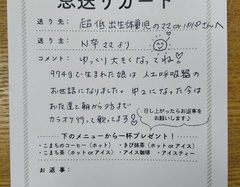 恩送りカード
送り先： 超低出生体重児のママ or パパさんへ
送り主： N母 ママ より
コメント： ゆっくり大きくなってね！
974gで生まれた娘は人工呼吸器の
お世話になりました。中1になった今は
お友達と朝から夕方まで
カラオケ行って歌ってます
召し上がったらお返事を
お願いします♪
下のメニューから一杯プレゼント！
・こまちのコーヒー（ホット） ・きび抹茶（ホット or アイス）
・こまち茶（ホット or アイス） ・アイス珈琲 ・アイスティー
お 返 事